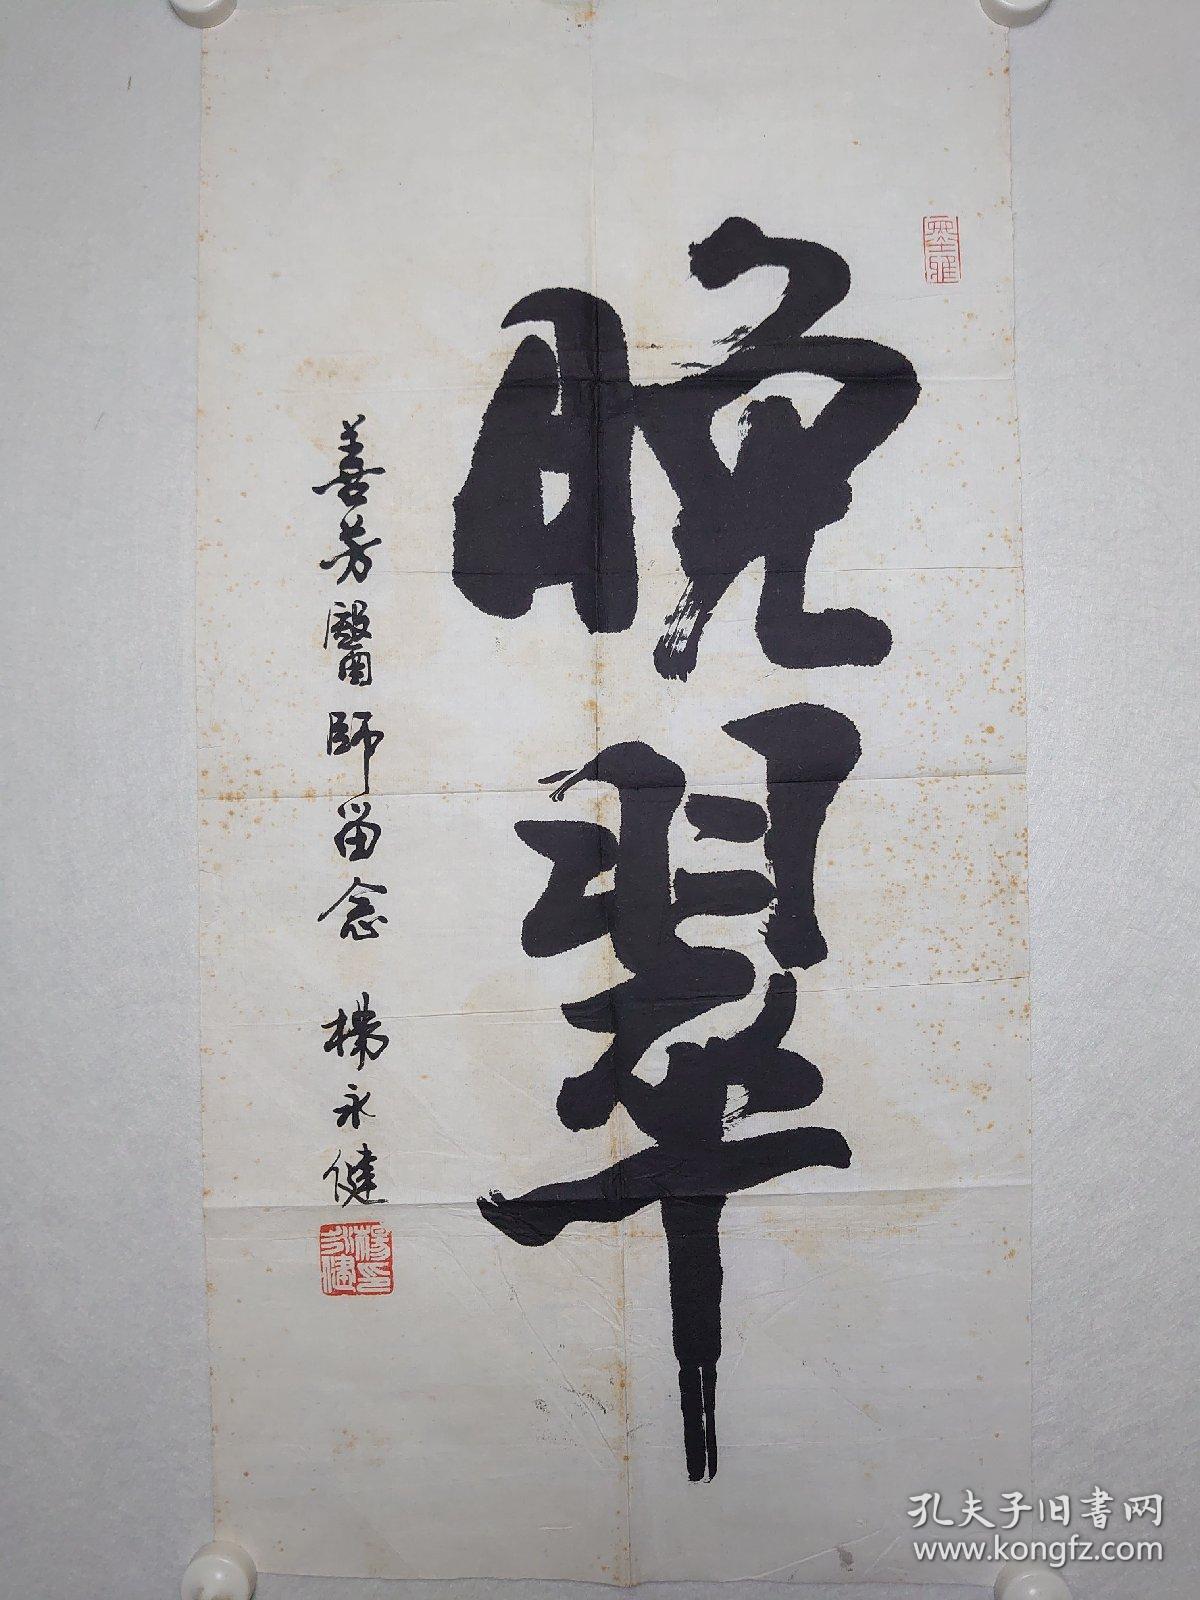 晚翠
善芳醫師留念 楊永健
墨雅
楊永健印
孔夫子旧书网
www.kongfz.com